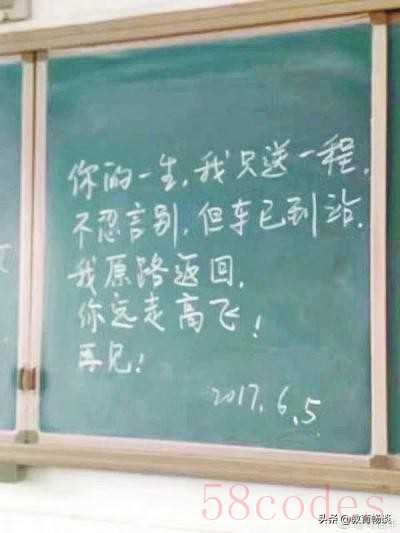 你的一生，我只送一程，
不忍言别，但车已到站，
我原路返回，
你远走高飞！
再见！
2017.6.5
58codes
头条@教育畅谈